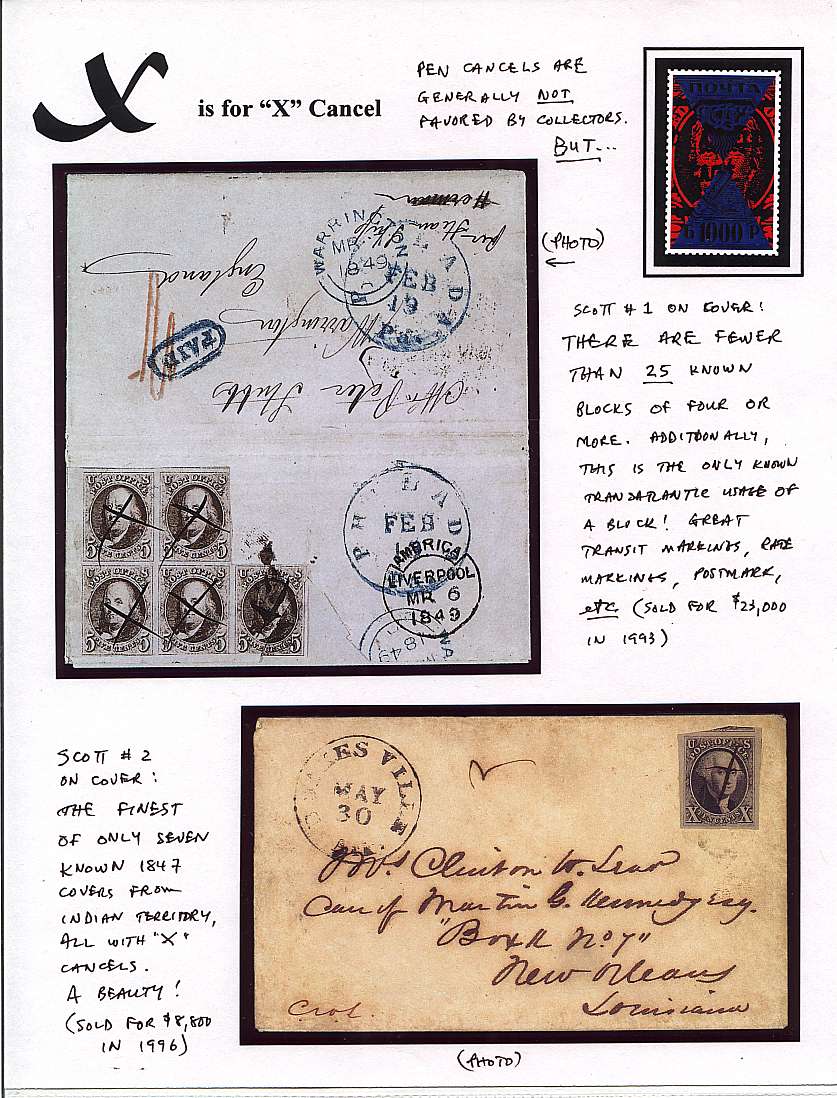 X
is for “X” Cancel
PEN CANCELS ARE
GENERALLY NOT
FAVORED BY COLLECTORS.
BUT...
ПОЧТА
Б 1000 Р
(PHOTO)
WARRINGTON
MR
1849
PHILADA
FEB
19
Pa.
per Steam Ship
England
Warrington
PAID
Peter Stubbs
SCOTT #1 ON COVER!
THERE ARE FEWER
THAN 25 KNOWN
BLOCKS OF FOUR OR
MORE. ADDITIONALLY,
THIS IS THE ONLY KNOWN
TRANSATLANTIC USAGE OF
A BLOCK! GREAT
TRANSIT MARKINGS, RATE
MARKINGS, POSTMARK,
etc (SOLD FOR $23,000
IN 1993)
U S
POST OFFICE
5 FIVE CENTS 5
U S
POST OFFICE
5 FIVE CENTS 5
POST OFFICE
5 FIVE CENTS 5
POST OFFICE
5 FIVE CENTS 5
5 FIVE CENTS 5
PHILADA
FEB
AMERICA
LIVERPOOL
MR 6
1849
SCOTT #2
ON COVER!
THE FINEST
OF ONLY SEVEN
KNOWN 1847
COVERS FROM
INDIAN TERRITORY,
ALL WITH "X"
CANCELS.
A BEAUTY!
(SOLD FOR $8,800
IN 1996)
VILLE
MAY
30
U S
POST OFFICE
X TEN CENTS X
Care of Martin G. Kennedy Esq.
"Box No 7"
New Orleans
Louisiana
(PHOTO)